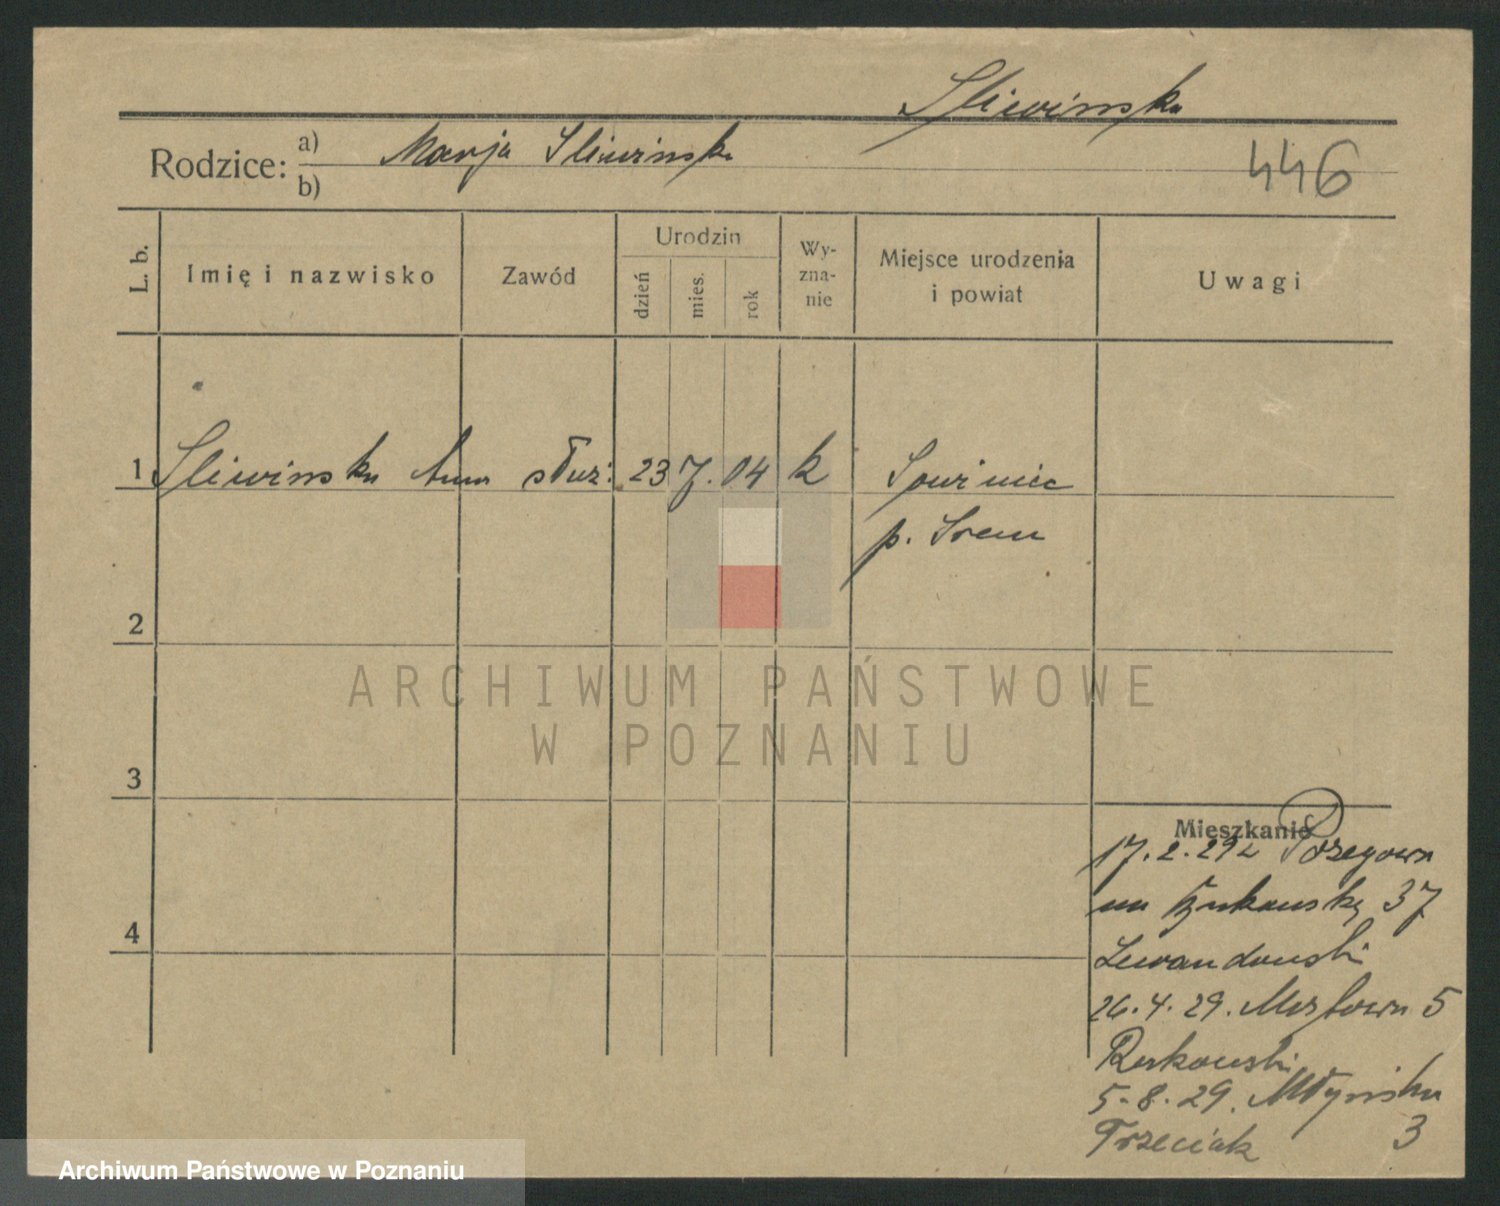 Sliwinska
Rodzice: a) Marja Sliwinska
b)
446
L. b.
Imię i nazwisko
Zawód
Urodzin
dzień
mies.
rok
Wy-
zna-
nie
Miejsce urodzenia
i powiat
Uwagi
1 Sliwinska Anna służ: 23 7. 04 k Sowiniec
p. Srem
2
3
4
Mieszkanie
17.2.29 z
37
Lewandowski
26.4.29. Mostowa 5
5.8.29. Młyńska
Trzeciak 3
ARCHIWUM PAŃSTWOWE
W POZNANIU
Archiwum Państwowe w Poznaniu